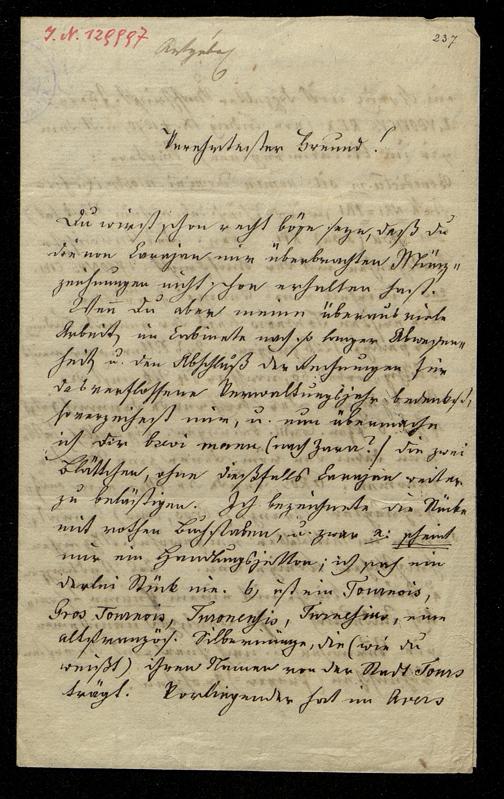 I. N. 129997
237
Verehrtester Freund!
Du wirst schon recht böse seyn, daß du
die von Karajan mir überbrachten Münz-
zeichnungen nicht schon erhalten hast.
Wenn Du aber meine überaus viele
Arbeit im Cabinete nach so langer Abwesen-
heit u. den Abschluß der Rechnungen für
das verflossene Verwaltungsjahr bedenkst,
so verzeihest mir, u. nun übermache
ich dir brevi manu (nach Zara?) die zwei
Blättchen, ohne dießfalls Karajan weiter
zu belästigen. Ich bezeichnete die Stücke
mit rothen Buchstaben, u. zwar a: scheint
mir ein Handlungsjetton; ich sah ein
derlei Stück nie. b, ist ein Tournois,
Gros Tournois, Turonensis, eine
altfranzös. Silbermünze, die (wie du
weißt) ihren Namen von der Stadt Tours
trägt. Vorliegender hat im Avers